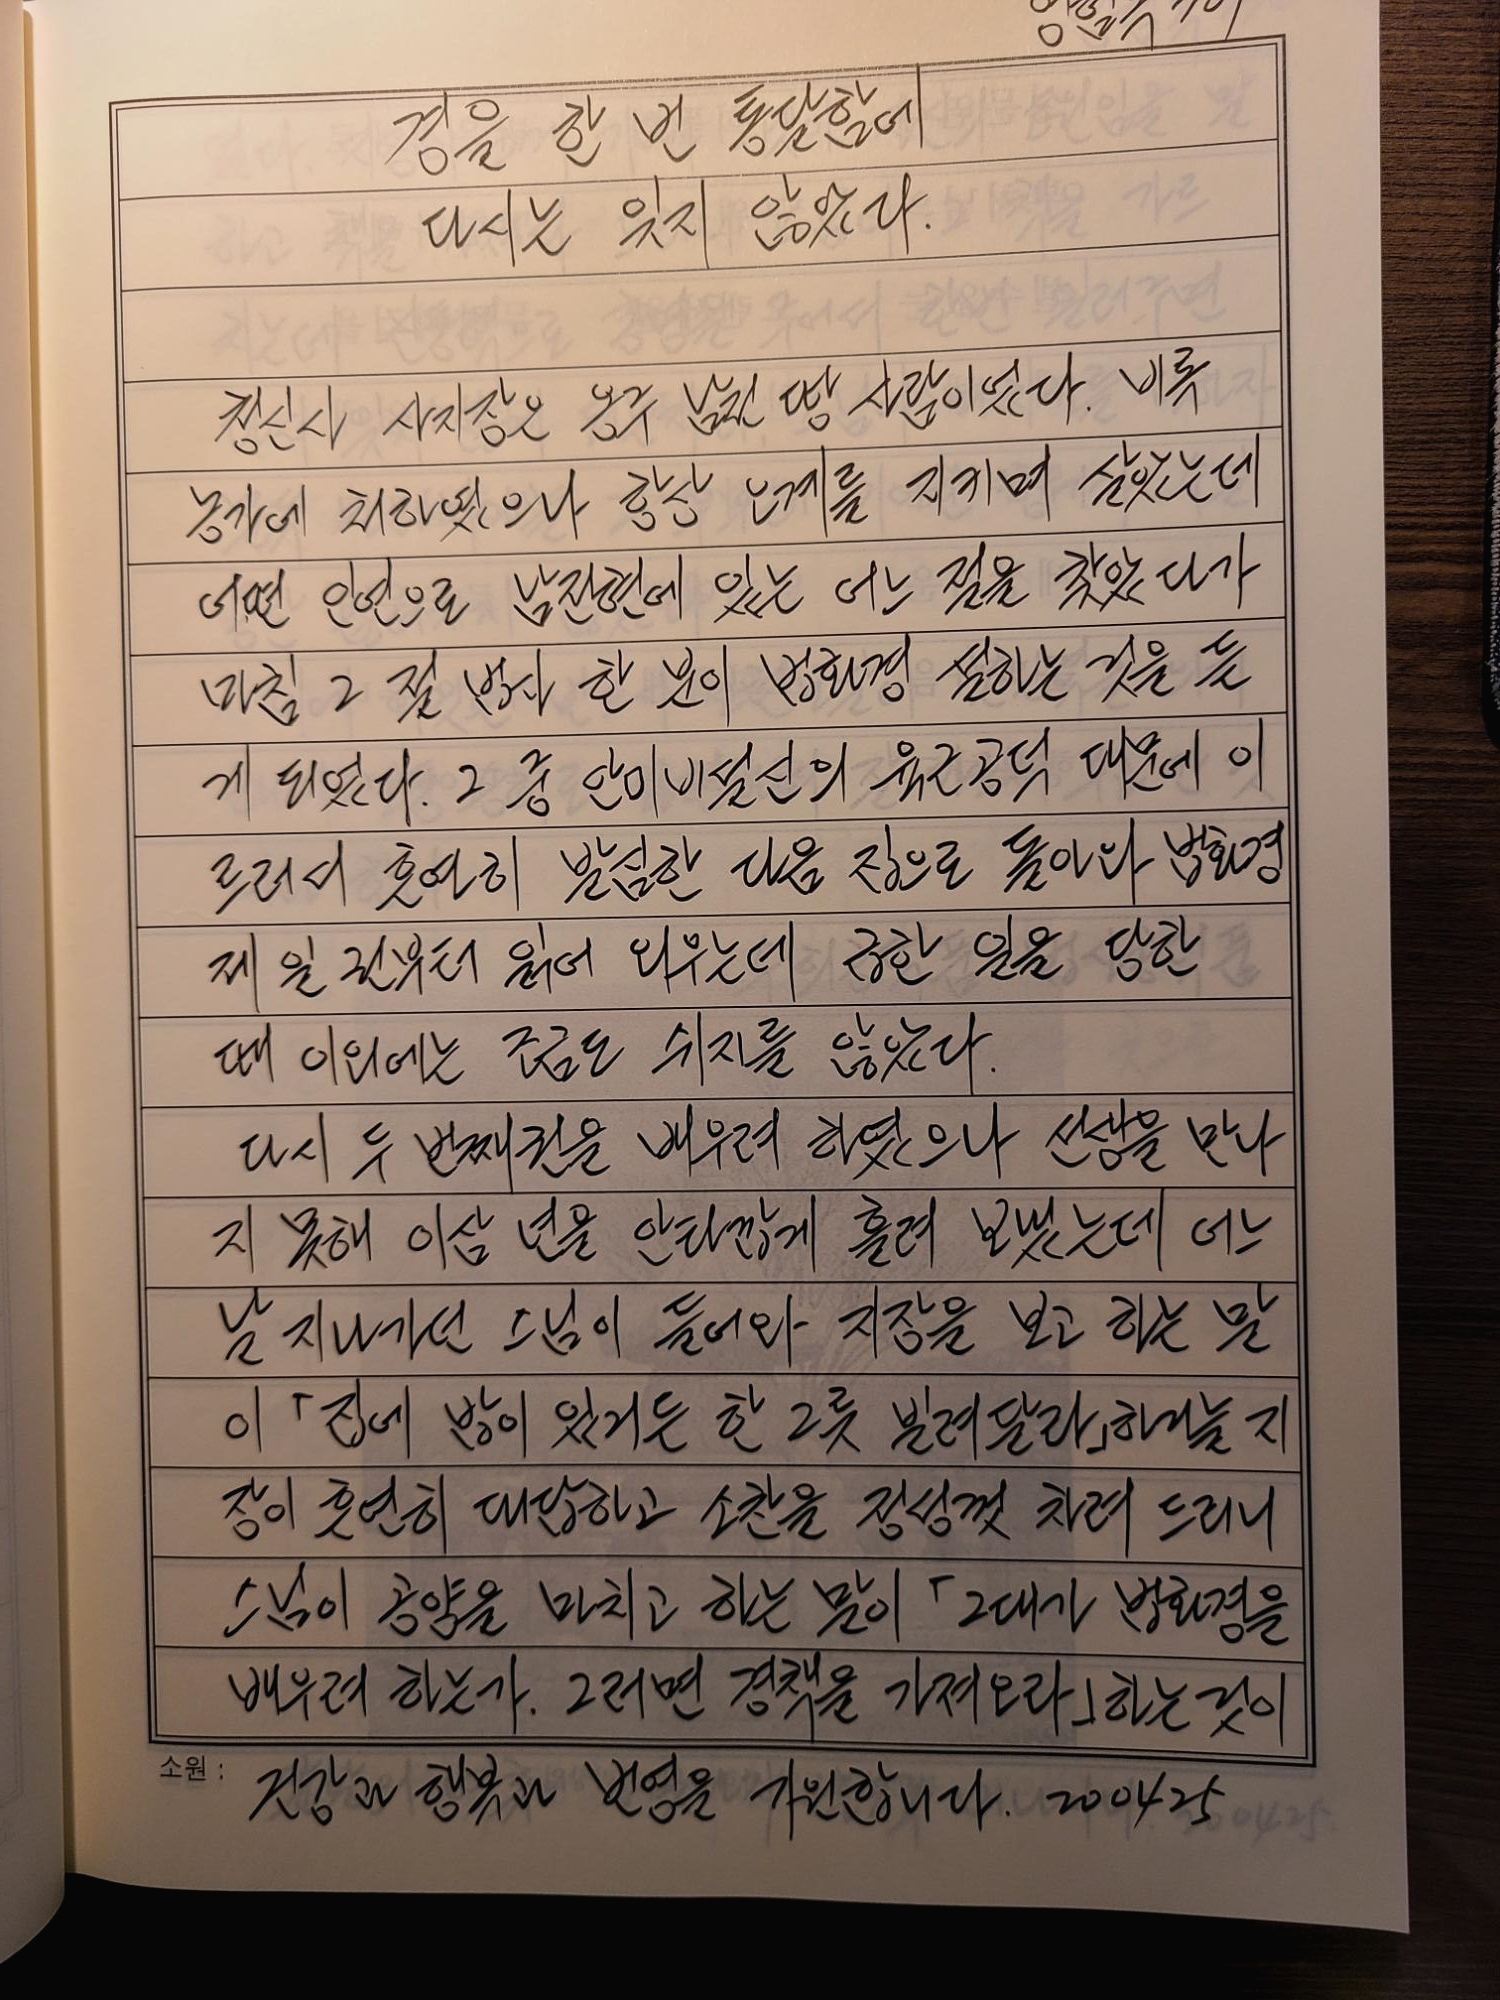 경을 한 번 통달함에
다시는 잊지 않았다.
청신사 사지장은 옹주 남전 땅 사람이었다. 비록
농가에 처하였으나 항상 오계를 지키며 살았는데
어떤 인연으로 남전현에 있는 어느 절을 찾았다가
마침 그 절 법사 한 분이 법화경 설하는 것을 듣
게 되었다. 그 중 안이비설신의 육근공덕 대문에 이
르러서 홋연히 발심한 다음 집으로 돌아와 법화경
제 일 권부터 읽어 외우는데 급한 일을 당한
때 이외에는 조금도 쉬지를 않았다.
다시 두 번째권을 배우려 하였으나 선생을 만나
지 못해 이삼 년을 안타깝게 흘려 보냈는데 어느
날 지나가던 스님이 들어와 지장을 보고 하는 말
이 「집에 밥이 있거든 한 그릇 빌려달라」하거늘 지
장이 홋연히 대답하고 소찬을 정성껏 차려 드리니
스님이 공양을 마치고 하는 말이 「그대가 법화경을
배우려 하는가. 그러면 경책을 가져오라」하는것이
소원 : 건강과 행복과 번영을 기원합니다. 200425